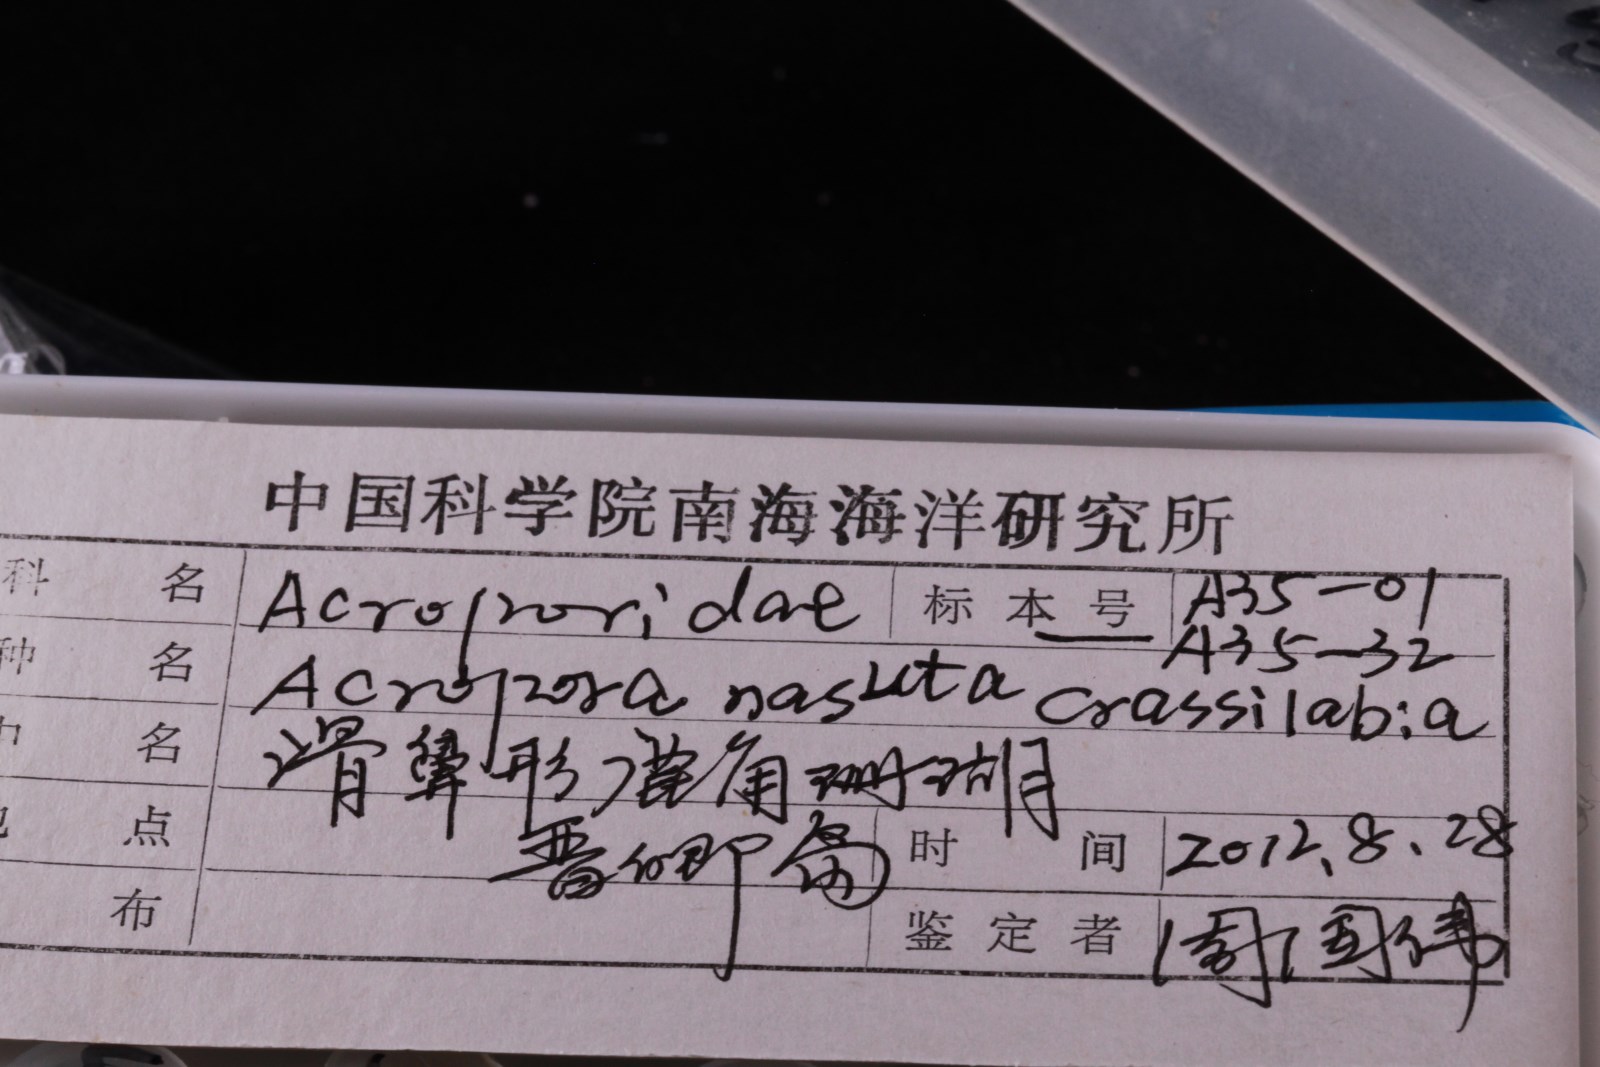 中国科学院南海海洋研究所
科 名 Acroporidae 标本号 A35-01
A35-32
种 名 Acropora nasuta crassilabia
中 名 形鹿角珊瑚
地 点 晋卿岛 时 间 2012.8.28
布 鉴定者 周国伟